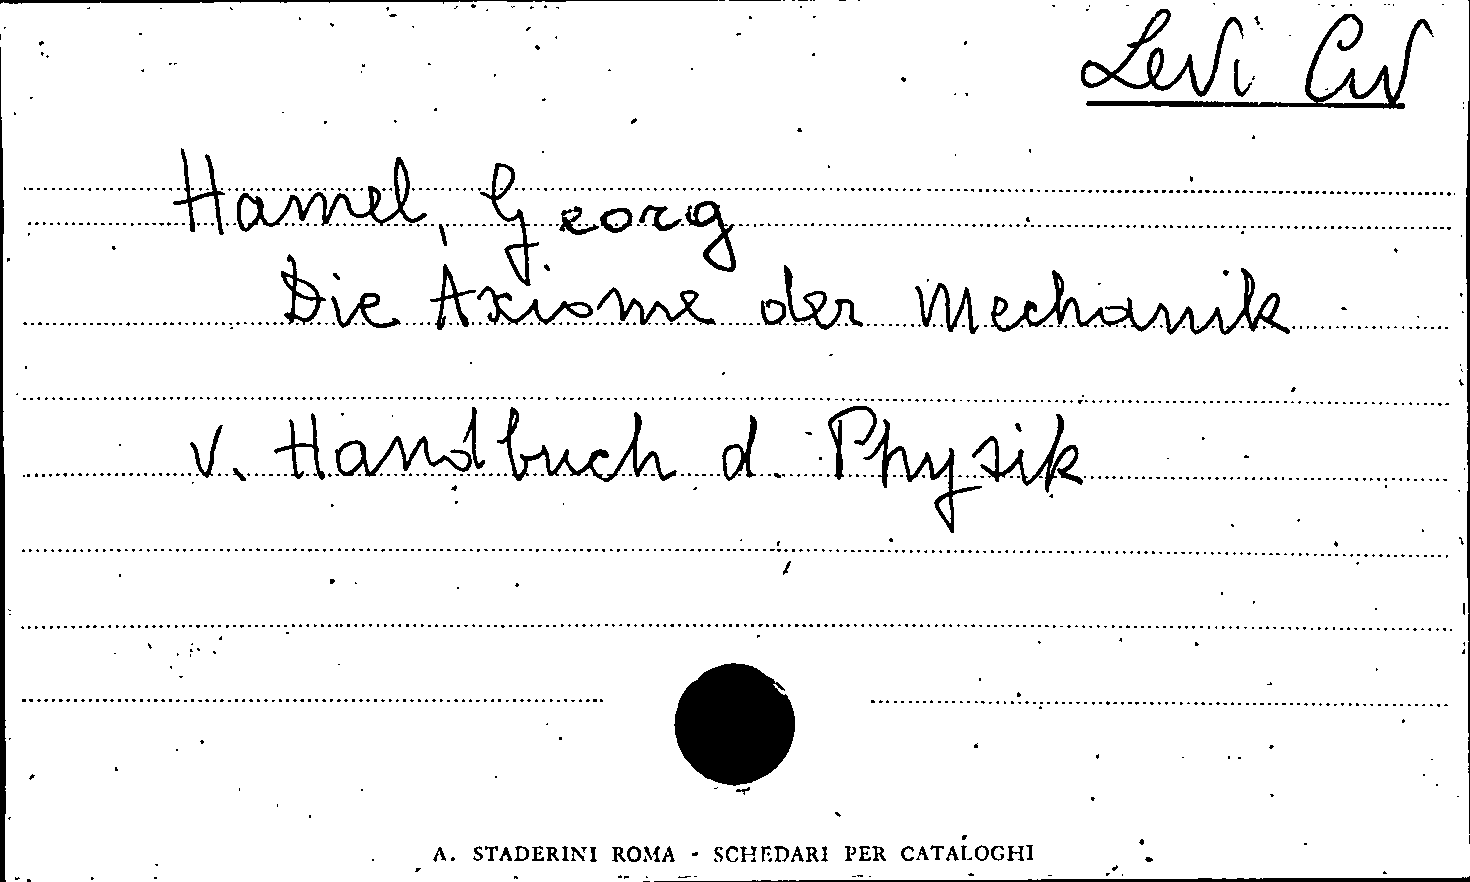 Levi Civ
Hamel, Georg
Die Axiome der Mechanik
v. Handbuch d. Physik
A. STADERINI ROMA - SCHEDARI PER CATALOGHI